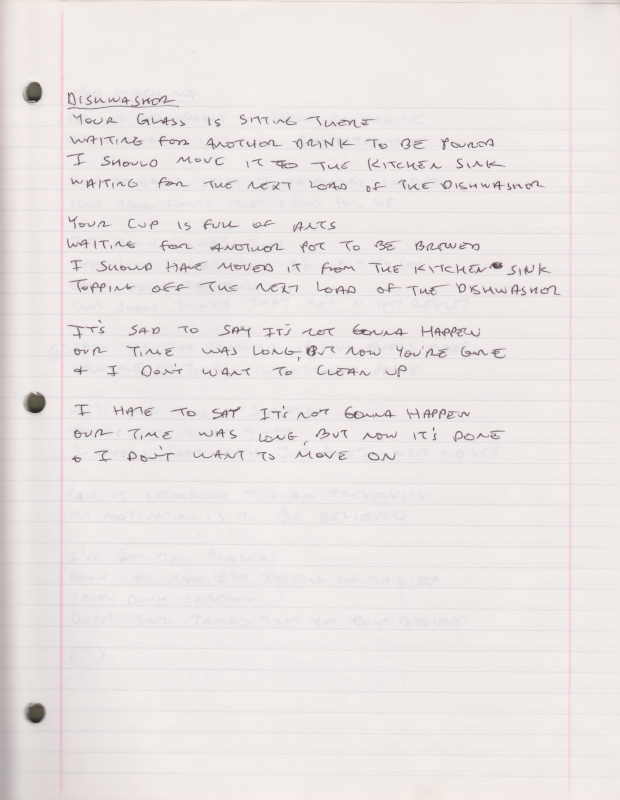 DISHWASHER
YOUR GLASS IS SITTING THERE
WAITING FOR ANOTHER DRINK TO BE POURED
I SHOULD MOVE IT TO THE KITCHEN SINK
WAITING FOR THE NEXT LOAD OF THE DISHWASHER
YOUR CUP IS FULL OF ANTS
WAITING FOR ANOTHER POT TO BE BREWED
I SHOULD HAVE MOVED IT FROM THE KITCHEN SINK
TOPPING OFF THE NEXT LOAD OF THE DISHWASHER
IT'S SAD TO SAY IT'S NOT GONNA HAPPEN
OUR TIME WAS LONG, BUT NOW YOU'RE GONE
& I DON'T WANT TO CLEAN UP
I HATE TO SAY IT'S NOT GONNA HAPPEN
OUR TIME WAS LONG, BUT NOW IT'S DONE
& I DON'T WANT TO MOVE ON